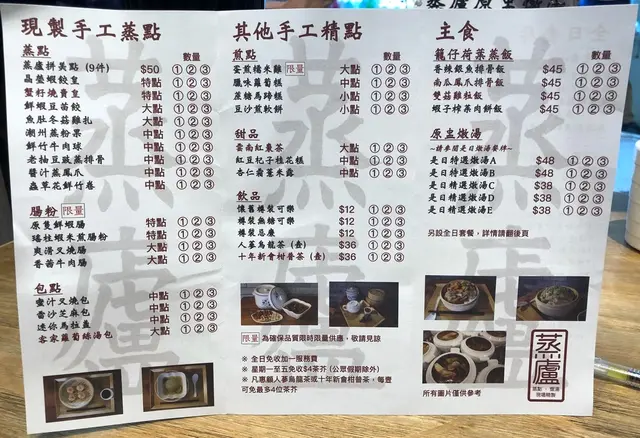 現製手工蒸點
蒸點 數量
蒸廬拼美點(9件) $50 ①②③
晶瑩蝦餃皇 特點 ①②③
蟹籽燒賣皇 特點 ①②③
鮮蝦豆苗餃 大點 ①②③
魚肚冬菇雞扎 大點 ①②③
潮州蒸粉果 中點 ①②③
鮮竹牛肉球 中點 ①②③
老柚豆豉蒸排骨 中點 ①②③
醬汁蒸鳳爪 中點 ①②③
蟲草花鮮竹卷 中點 ①②③
腸粉 限量 數量
原隻鮮蝦腸 特點 ①②③
瑤柱蝦米煎腸粉 特點 ①②③
爽滑叉燒腸 大點 ①②③
香茜牛肉腸 大點 ①②③
包點 數量
蜜汁叉燒包 中點 ①②③
雷沙芝麻包 中點 ①②③
迷你馬拉盞 中點 ①②③
客家蘿蔔絲湯包 大點 ①②③
其他手工精點
煎點 數量
瓷煎糯米雞 限量 大點 ①②③
臘味蘿蔔糕 中點 ①②③
蔗糖馬蹄糕 小點 ①②③
豆沙煎軟餅 小點 ①②③
甜品
雲南紅棗茶 大點 ①②③
紅豆杞子桂花糕 中點 ①②③
杏仁霜薏米露 中點 ①②③
飲品
懷舊樽裝可樂 $12 ①②③
樽裝無糖可樂 $12 ①②③
樽裝忌廉 $12 ①②③
人蔘烏龍茶(壺) $36 ①②③
十年新會柑普茶(壺) $36 ①②③
限量 為確保品質限時限量供應，敬請見諒
※ 全日免收加一服務費
※ 星期一至五免收$4茶芥 (公眾假期除外)
※ 凡惠顧人蔘烏龍茶或十年新會柑普茶，每壹
可免最多4位茶芥
主食
籠仔荷葉蒸飯 數量
香辣銀魚排骨飯 $45 ①②③
南瓜鳳爪排骨飯 $45 ①②③
雙菇雞粒飯 $45 ①②③
蝦子榨菜肉餅飯 $45 ①②③
原盅燉湯
~請參閱是日燉湯餐牌~
是日特選燉湯A $48 ①②③
是日特選燉湯B $48 ①②③
是日精選燉湯C $38 ①②③
是日精選燉湯D $38 ①②③
是日精選燉湯E $38 ①②③
另設全日套餐，詳情請翻後頁
所有圖片僅供參考
蒸廬
蒸點·燉湯
現場精製